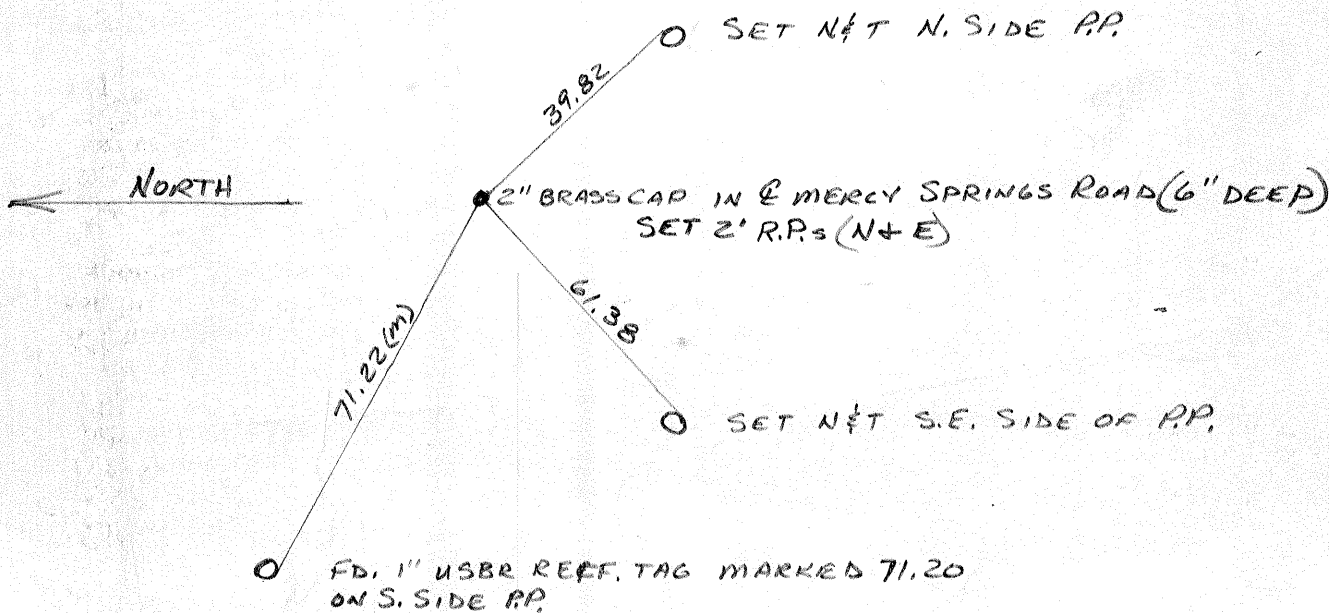 SET N&T N. SIDE P.P.
39.82
NORTH
2" BRASS CAP IN ℄ MERCY SPRINGS ROAD (6" DEEP)
SET 2' R.P.s (N & E)
61.38
71.22(m)
SET N&T S.E. SIDE OF P.P.
FD. 1" USBR REFF. TAG MARKED 71.20
ON S. SIDE P.P.